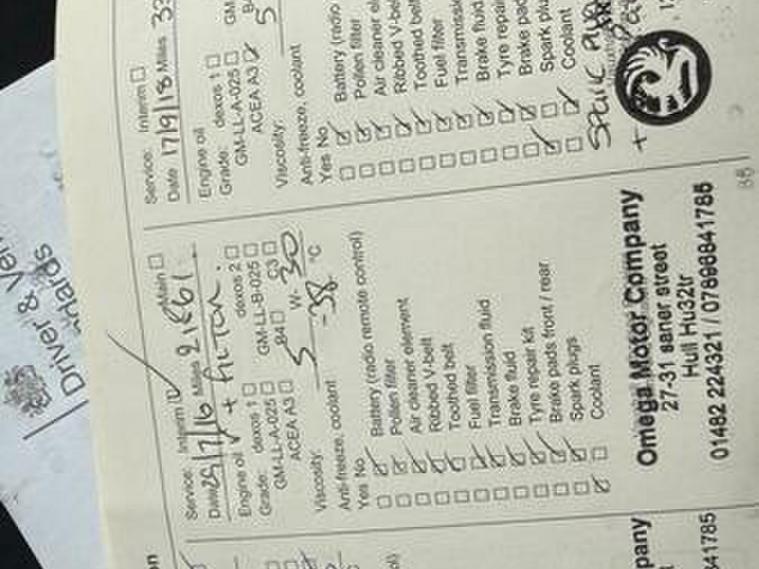 Driver & Veh
ndards
Service: Interim Main
Date 25/7/16 Miles 21861
Engine oil + FILTER.
Grade: dexos 1 dexos 2
GM-LL-A-025 GM-LL-B-025
ACEA A3 B4 C3
Viscosity: 5 W- 30
Anti-freeze, coolant -38 °C
Yes No
Battery (radio remote control)
Pollen filter
Air cleaner element
Ribbed V-belt
Toothed belt
Fuel filter
Transmission fluid
Brake fluid
Tyre repair kit
Brake pads front / rear
Spark plugs
Coolant
Omega Motor Company
27-31 saner street
Hull Hu32tr
01482 224321 / 07896841785
Service: Interim
Date 17/9/18 Miles
Engine oil
Grade: dexos 1
GM-LL-A-025
ACEA A3
Viscosity: 5
Anti-freeze, coolant
Yes No
Battery (radio
Pollen filter
Air cleaner el
Ribbed V-be
Toothed belt
Fuel filter
Transmissio
Brake fluid
Tyre repair
Brake pad
Spark plu
Coolant
+ Spark Plug
85
pany
41785